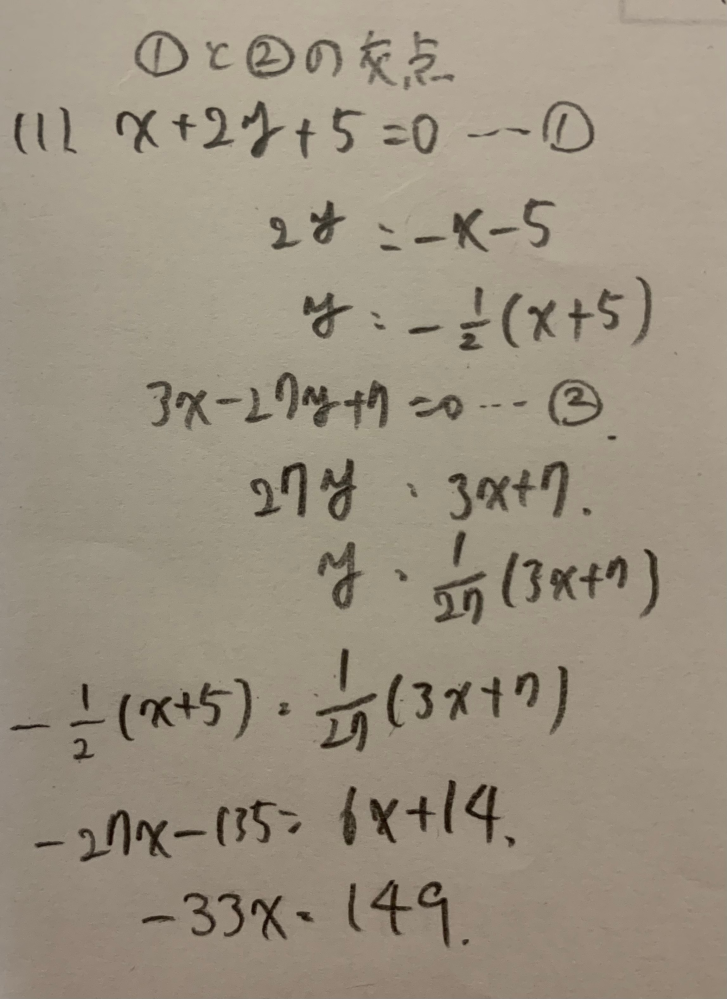 ①と②の交点
(1) x+2y+5=0 ---①
2y=-x-5
y=-\frac{1}{2}(x+5)
3x-27y+7=0 --- ②.
27y=3x+7.
y=\frac{1}{27}(3x+7)
-\frac{1}{2}(x+5)=\frac{1}{27}(3x+7)
-27x-135=6x+14.
-33x=149.